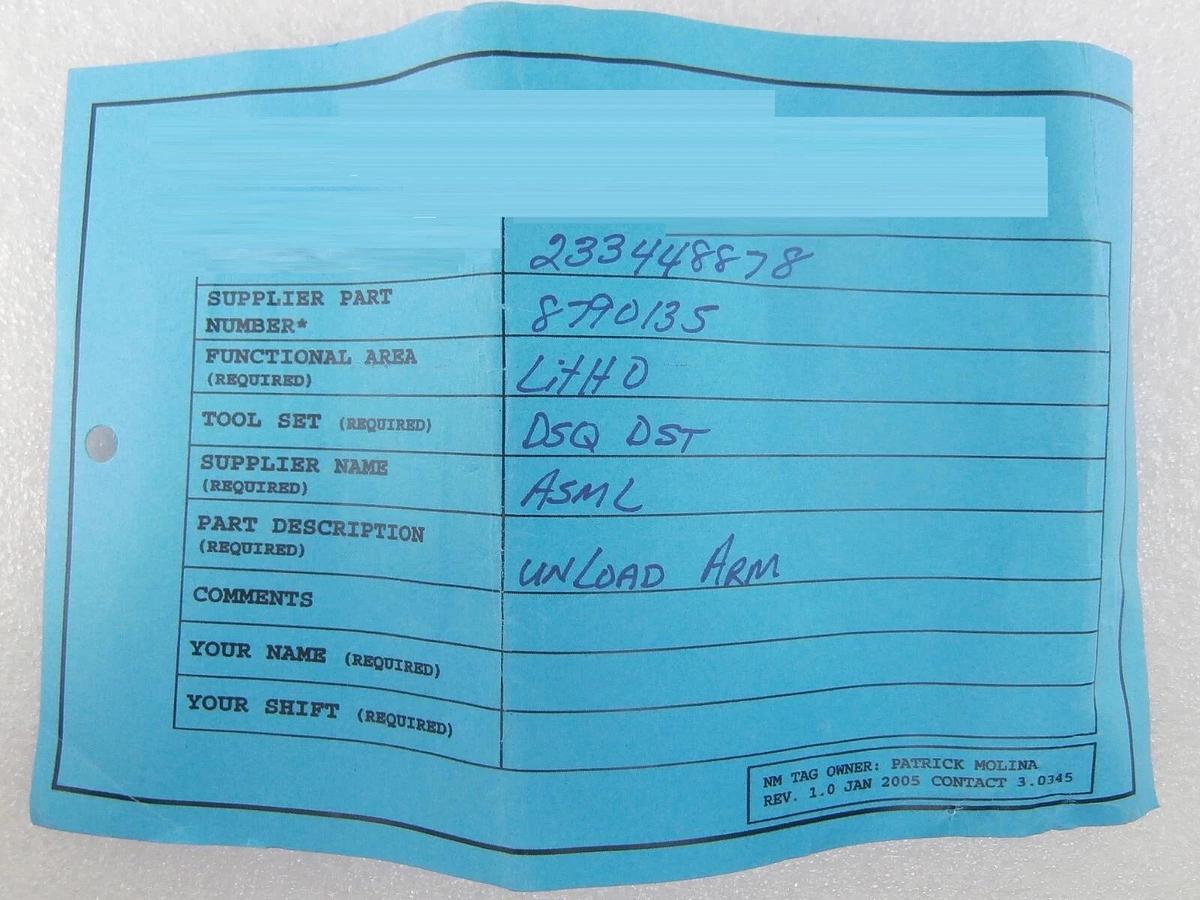 233448878
SUPPLIER PART
NUMBER*
8790135
FUNCTIONAL AREA
(REQUIRED)
LitHO
TOOL SET (REQUIRED)
DSQ DST
SUPPLIER NAME
(REQUIRED)
ASML
PART DESCRIPTION
(REQUIRED)
UNLOAD ARM
COMMENTS
YOUR NAME (REQUIRED)
YOUR SHIFT (REQUIRED)
NM TAG OWNER: PATRICK MOLINA
REV. 1.0 JAN 2005 CONTACT 3.0345